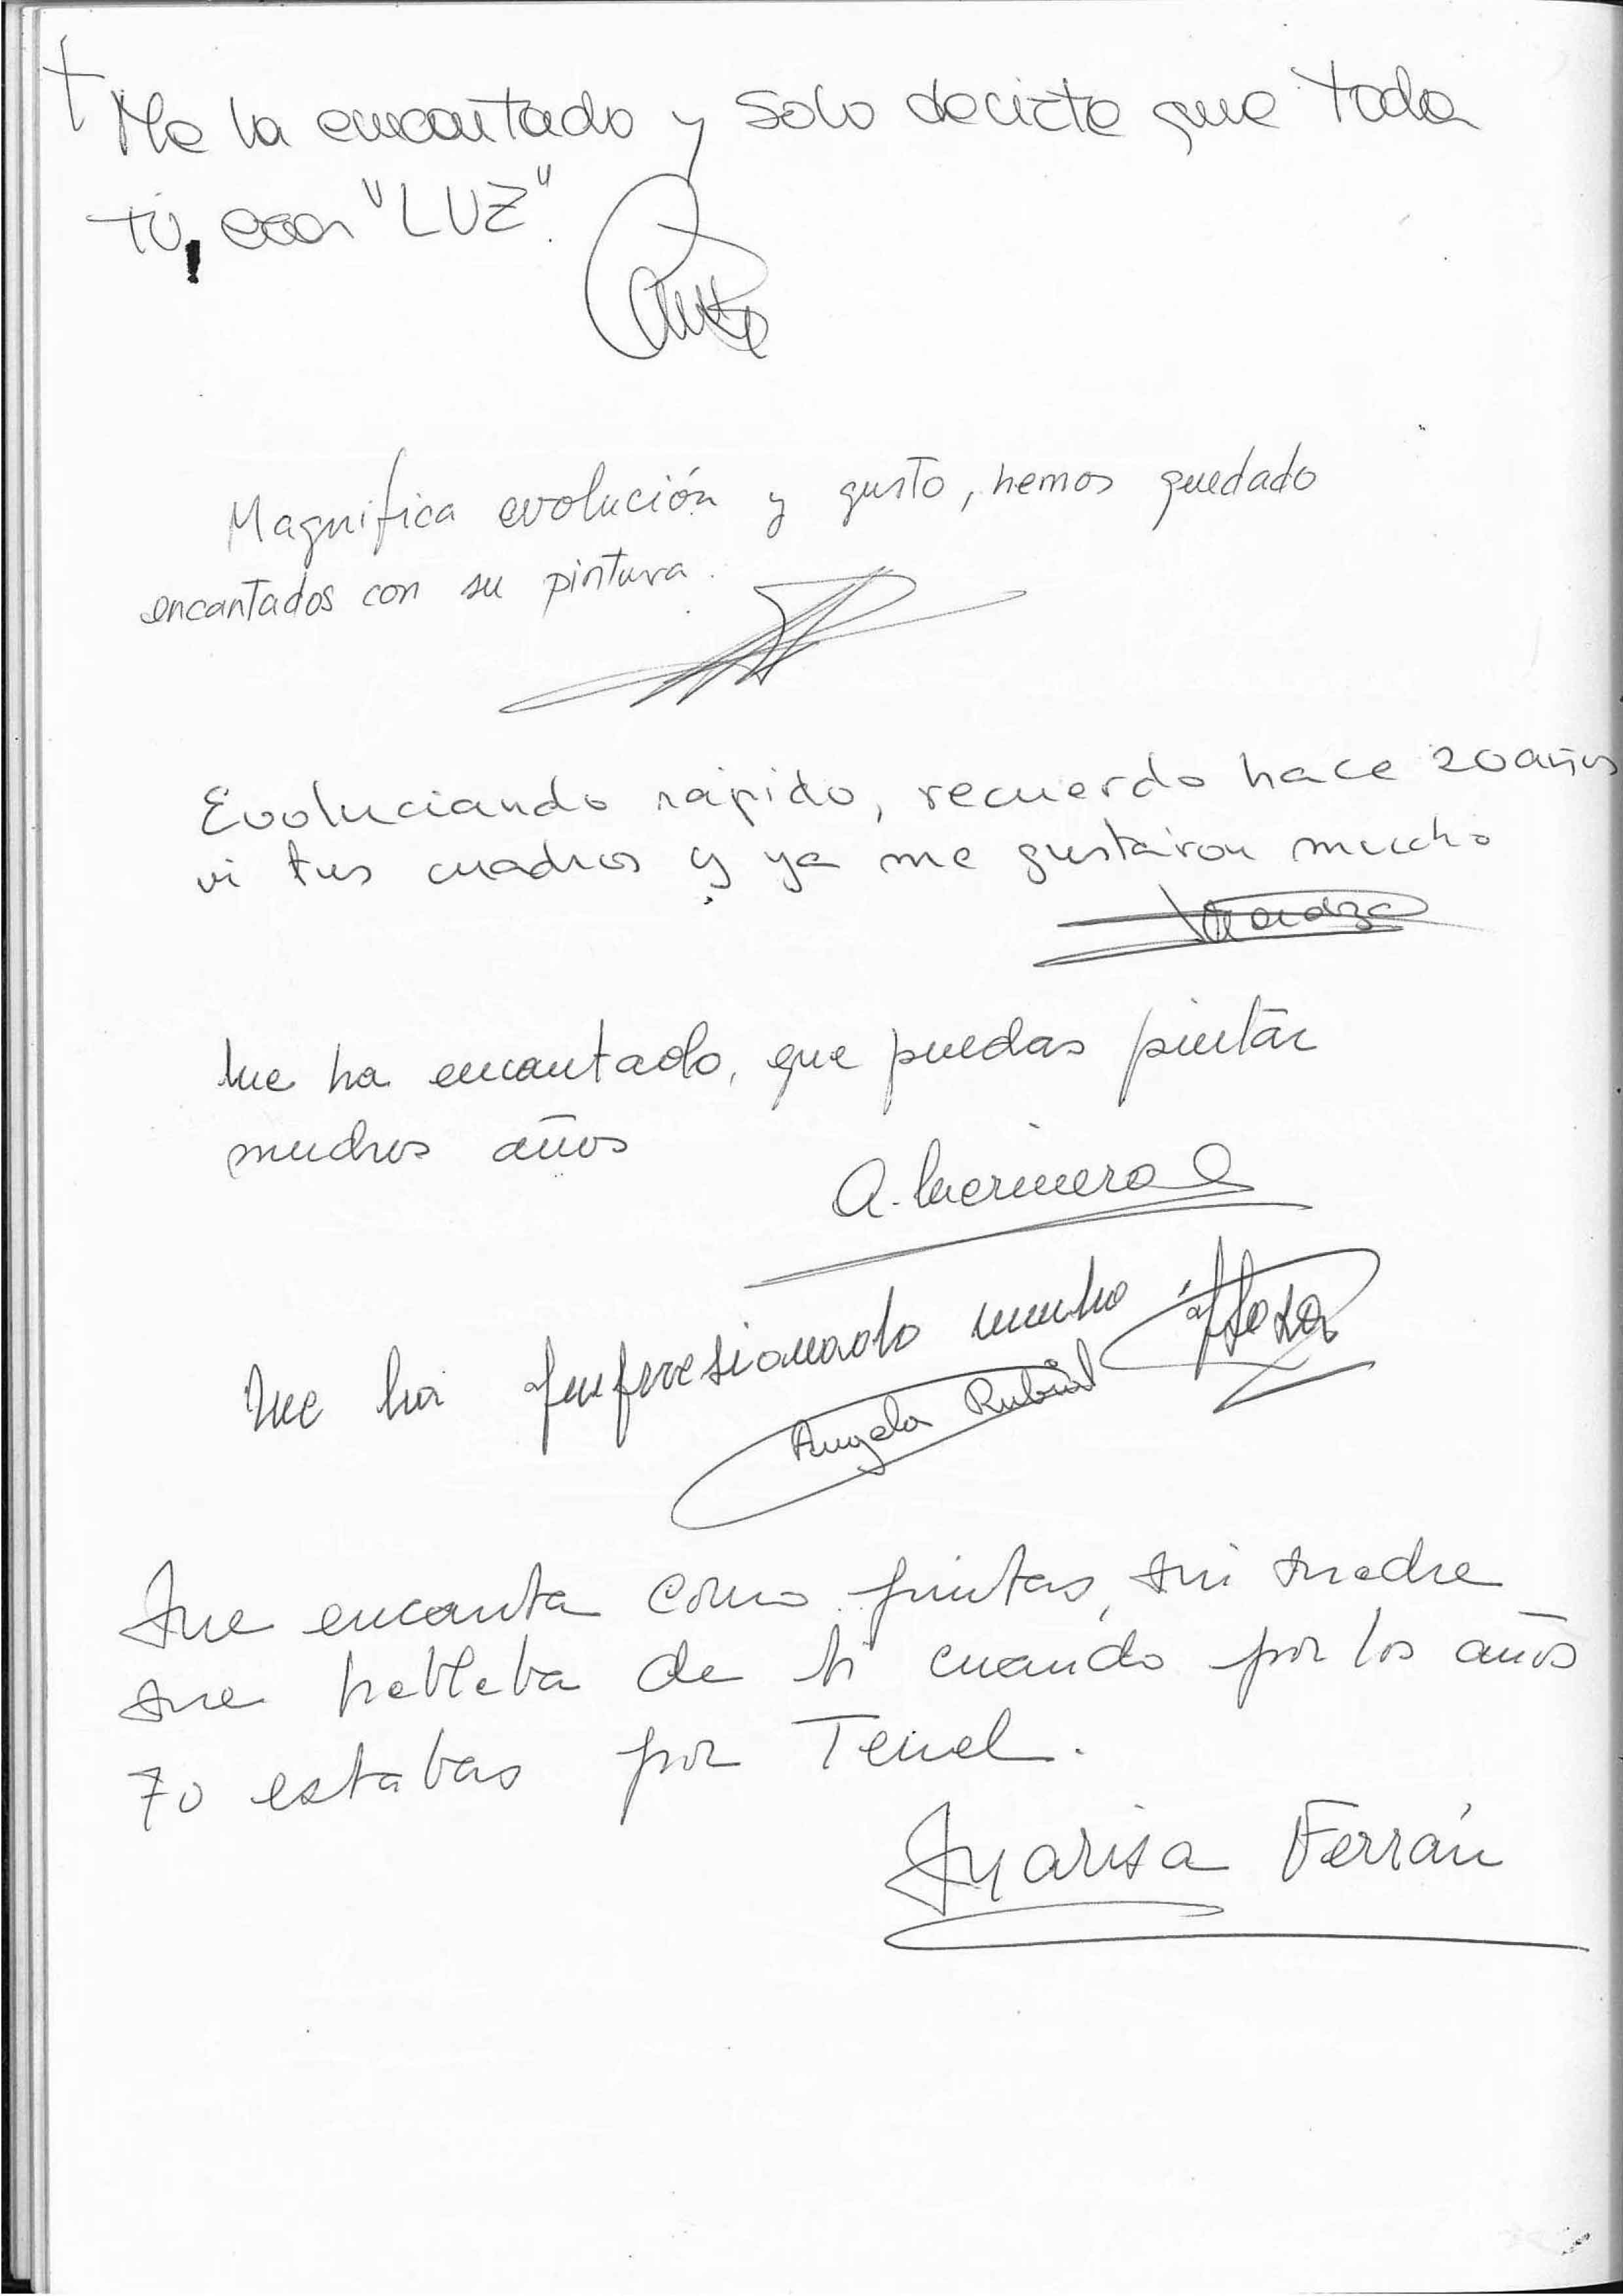 Me ha encantado y solo decirte que toda
tú, eres "LUZ".
Magnifica evolución y gusto, hemos quedado
encantados con su pintura.
Evoluciando rápido, recuerdo hace 20 años
vi tus cuadros y ya me gustaron mucho
Me ha encantado, que puedas pintar
muchos años
A. Merinero
Me ha impresionado mucho
Angela Rubio
Me encanta como pintas, mi madre
me hablaba de ti cuando por los años
70 estabas por Teruel.
Marisa Ferrán